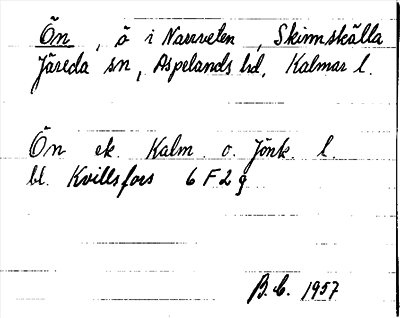 Ön, ö i Narrveten, Skinnskälla
Järeda sn, Aspelands hd, Kalmar l.
Ön ek. Kalm. o. Jönk. l.
bl. Kvillsfors 6 F 2 g
B.C. 1957